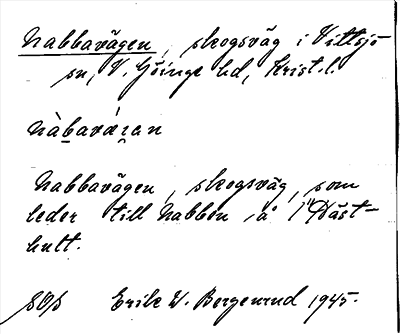 Nabbavägen, skogsväg i Vittsjö
sn, V. Göinge hd, Krist. l.
nàbavá̤ran
Nabbavägen, skogsväg, som
leder till Nabben å Häst-
hult.
Erik W. Bergenrud 1945.